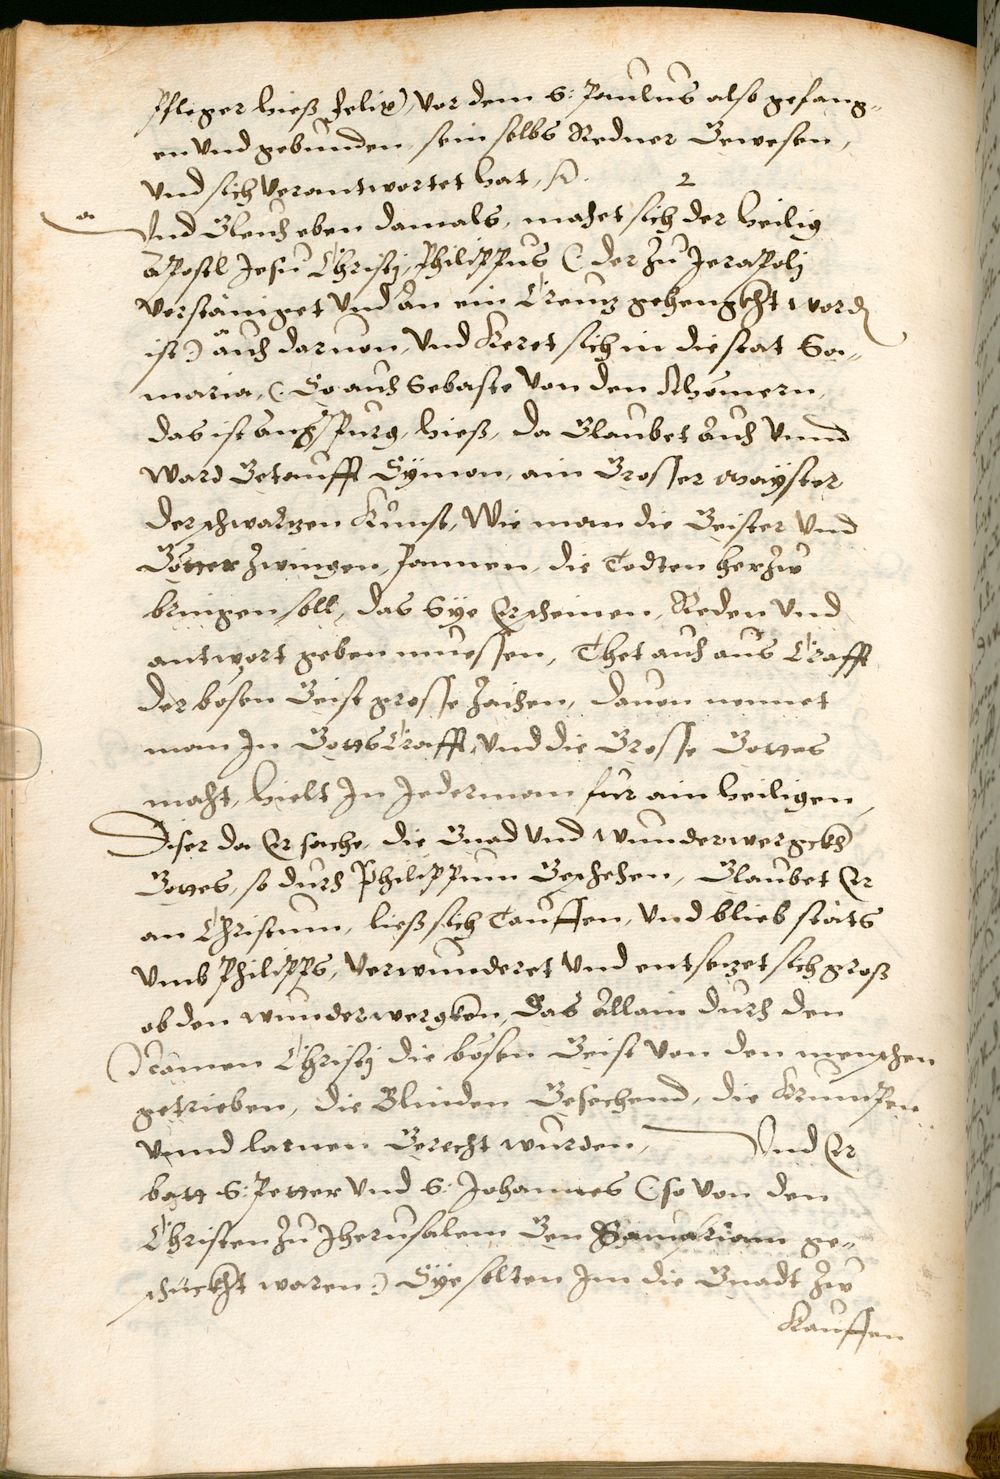 Pfleger hieß Felix) vor dem S: Paulus also gefang-
en vnd gebunden, sein selbs Redner Gewesen,
vnd sich verantwortet hat,
2
a
Vnd Gleich eben damals, machet sich der heilig
Apostl Jesu Christj Philippus (: der zu Jerapolj
verstainiget vnd an ein Creutz gehengckht word
ist:) auch daruon, vnd keret sich in die stat Sa-
maria, (: So auch Sebaste von den Rhömern,
das ist augspurg, hieß, da Glaubet auch vnnd
ward Getaufft Symon, ain Grosser mayster
der schwartzen Kunst, Wie man die Geister vnd
Götter zwingen, pannen, die Todten herzu
bringen soll, das Sye Erscheinen, Reden vnd
antwort geben muessen, Thet auch aus Crafft
der bösen Geist grosse zaichen, dauon nennet
man In Gotts Crafft, vnd die Grosse Gottes
macht, hielt In Jederman für ain heiligen,
Diser da Er sache, die Gnad vnd wunderwergckh
Gottes, so durch Philippum Geschehen, Glaubet Er
an Christum, ließ sich Tauffen, vnd blieb stäts
vmb Philipps, verwunderet vnd entsetzet sich groß
ob den wunderwergken, Das Allain durch den
Namen Christj die bösen Geist von den menschen
getrieben, die Blinden Gesechend, die Krumpen
vnnd lamen Gerecht wurden, Vnd Er
batt S: Petter vnd S: Johannes (: so von den
Christen zu Jherusalem Gen Samariam ge-
schückht waren:) Sye solten Im die Gnadt zu
Kauffen